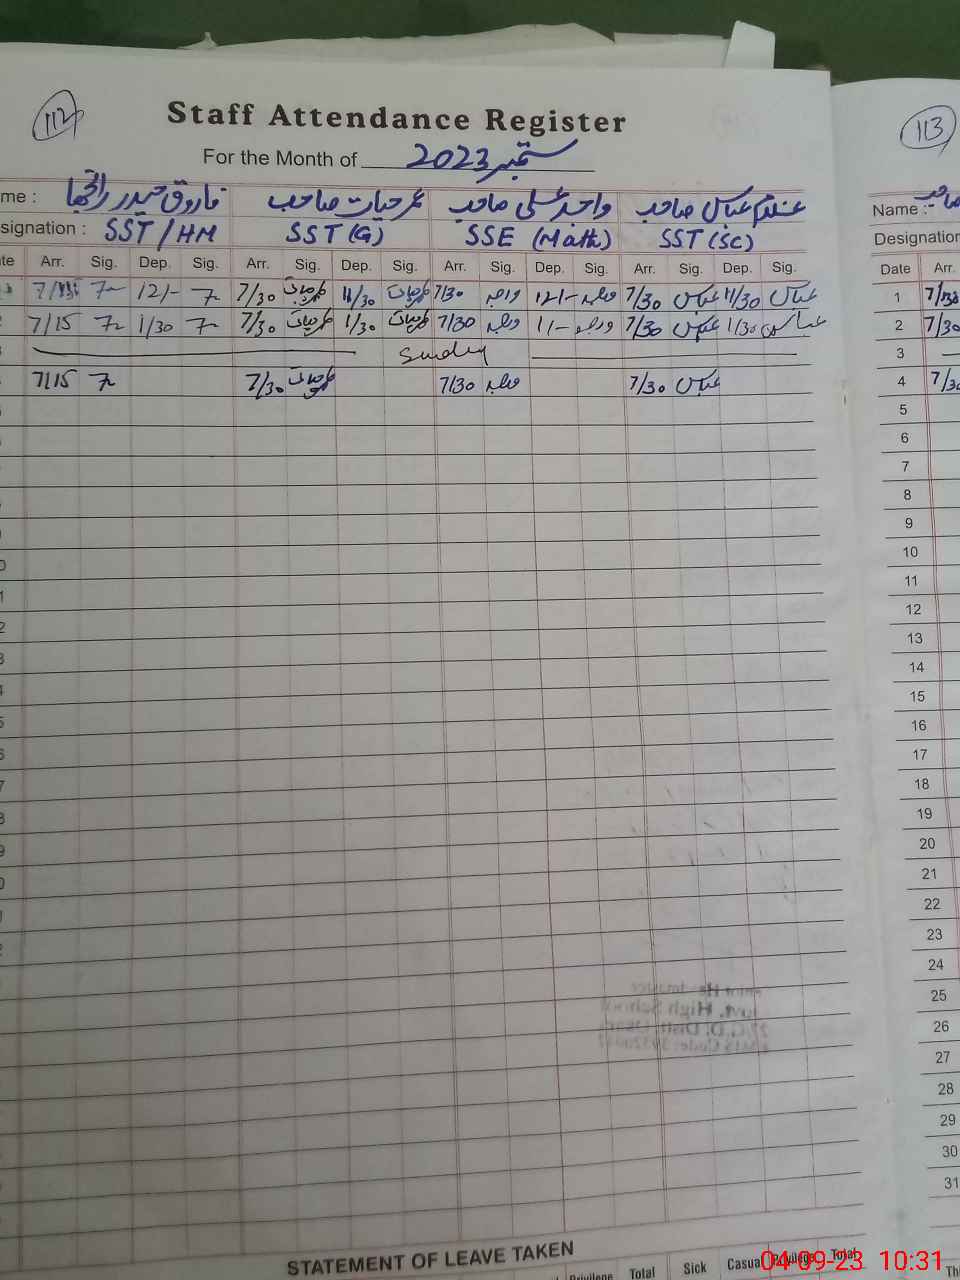 112
Staff Attendance Register
113
For the Month of ستمبر 2023
me : فاروق حیدر رانجھا عمر حیات صاحب واجد علی صاحب غلام عباس صاحب Name :
signation : SST/HM SST (G) SSE (Math) SST (SC) Designation
te Arr. Sig. Dep. Sig. Arr. Sig. Dep. Sig. Arr. Sig. Dep. Sig. Arr. Sig. Dep. Sig. Date Arr.
12/- 7/30 11/30 7/30 واجد 12/- 7/30 عباس 11/30 عباس 1 7/30
7/15 1/30 7/30 1/30 7/30 1/- 7/30 عباس 1/30 عباس 2 7/30
Sunday 3
7/15 7/30 7/30 7/30 عباس 4 7/30
5
6
7
8
9
10
11
12
13
14
15
16
17
18
19
20
21
22
23
24
25
26
27
28
29
30
31
STATEMENT OF LEAVE TAKEN
Privilege Total Sick Casual Privilege Total Th
04-09-23 10:31